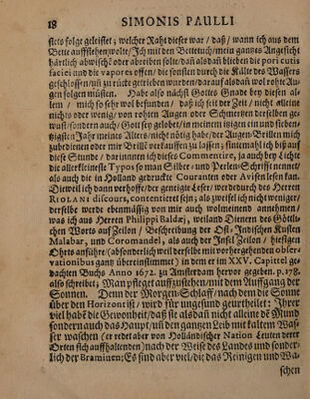 18 SIMONIS PAULLI
stets folge geleistet; welcher Raht dieser war / daß / wann ich aus dem
Bette auffstehen wolte / Jch mit den Bettetuch / mein gantzes Angesicht
härtlich abwisch̄ oder abreiben solte / dañ alsdañ blieben die pori cutis
facici und die vapores offen / die sonsten durch die Kälte des Wassers
geschlossen / uñ zu rücke getrieben würden / daß alsdañ offt rohte Aug-
en folgen müsten. Habe also nächst Gottes Gnade bey diesen al-
lem / mich so sehr wol befunden / daß ich seit der Zeit / nicht alleine
nichts oder wenig / von rohten Augen oder Schmertzen derselben ge-
wust / sondern auch / Gott sey gelobet / in meinem itzigen ein und siebe-
tzigsten Jahr meines Alters / nicht nötig habe / der Augen-Brillen mich
zu bedienen oder mir Brillē verkauffen zu lassen; sintemahl ich biß auf
diese Stunde / darinnen ich dieses Commentire, ja auch bey Lichte
die allerkleineste Typos so man Silber- und Perlen-Schrifft nennet /
als auch die in Holland gedruckte Couranten oder Avisen lesen kan.
Dieweil ich dann verhoffe / der geneigte Leser / werde durch des Herren
RIOLANI discours, contentiret seyn / als zweifel ich nicht weniger /
derselbe werde ebenmässig von mir auch wolmeinend annehmen /
was ich aus Herren Philippi Baldæi, weiland Dieners des Göttli-
chen Worts auf Zeilon / Beschreibung der Ost-Jndischen Küsten
Malabar, und Coromandel, als auch der Jnsel Zeilon / hiesigen
Ohrts anführe / (absonderlich weil derselbe mit vorhergehenden obser-
vationibus gantz übereinstimmet) in dem er im XXV. Capittel ge-
dachten Buchs Anno 1672. zu Amsterdam hervor gegeben. p. 178.
also schreibet; Man pfleget auffzustehen / mit dem Auffgang der
Sonnen. Denn der Morgen-Schlaff / nach dem die Sonne
über den Horizont ist / wird für ungesund geurtheilet: Jhrer
viel habē die Gewonheit / daß sie alsdañ nicht alleine dē Mund
sondern auch das Haupt / uñ den gantzen Leib mit kaltem Was-
ser waschen (er redet aber von Holländischer Nation Leuten derer
Orten sich auffhaltenden) nach der Weise des Landes und sonder-
lich der Braminen; Es sind aber viel / die das Reinigen und Wa-
schen